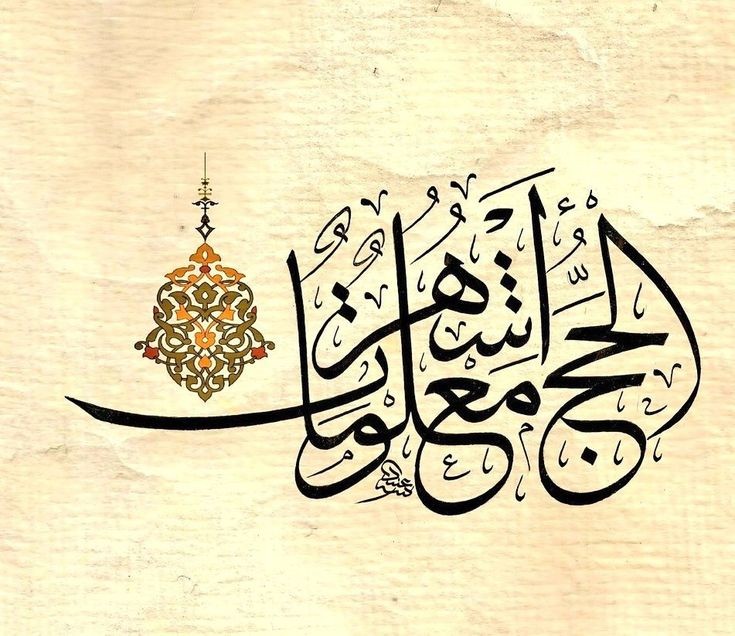 الحَجُّ أَشْهُرٌ مَعْلُومَاتٌ